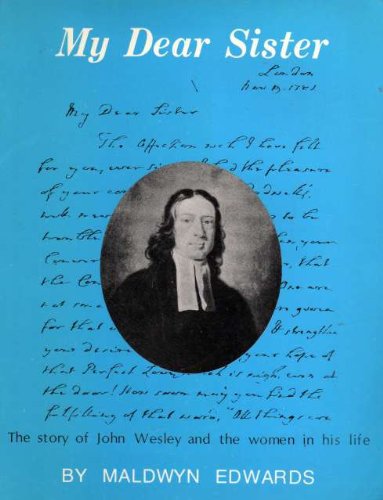 My Dear Sister
London
My Dear Sister
The Affection wch I have felt
for you, ever since I had the pleasure
of your
to be
your
that
the
for that
strengthen
your desire your hope of
that Perfect Love, wch is nigh, even at
the door! How soon may you find the
fulfilling of that word, "All things are
The story of John Wesley and the women in his life
BY MALDWYN EDWARDS